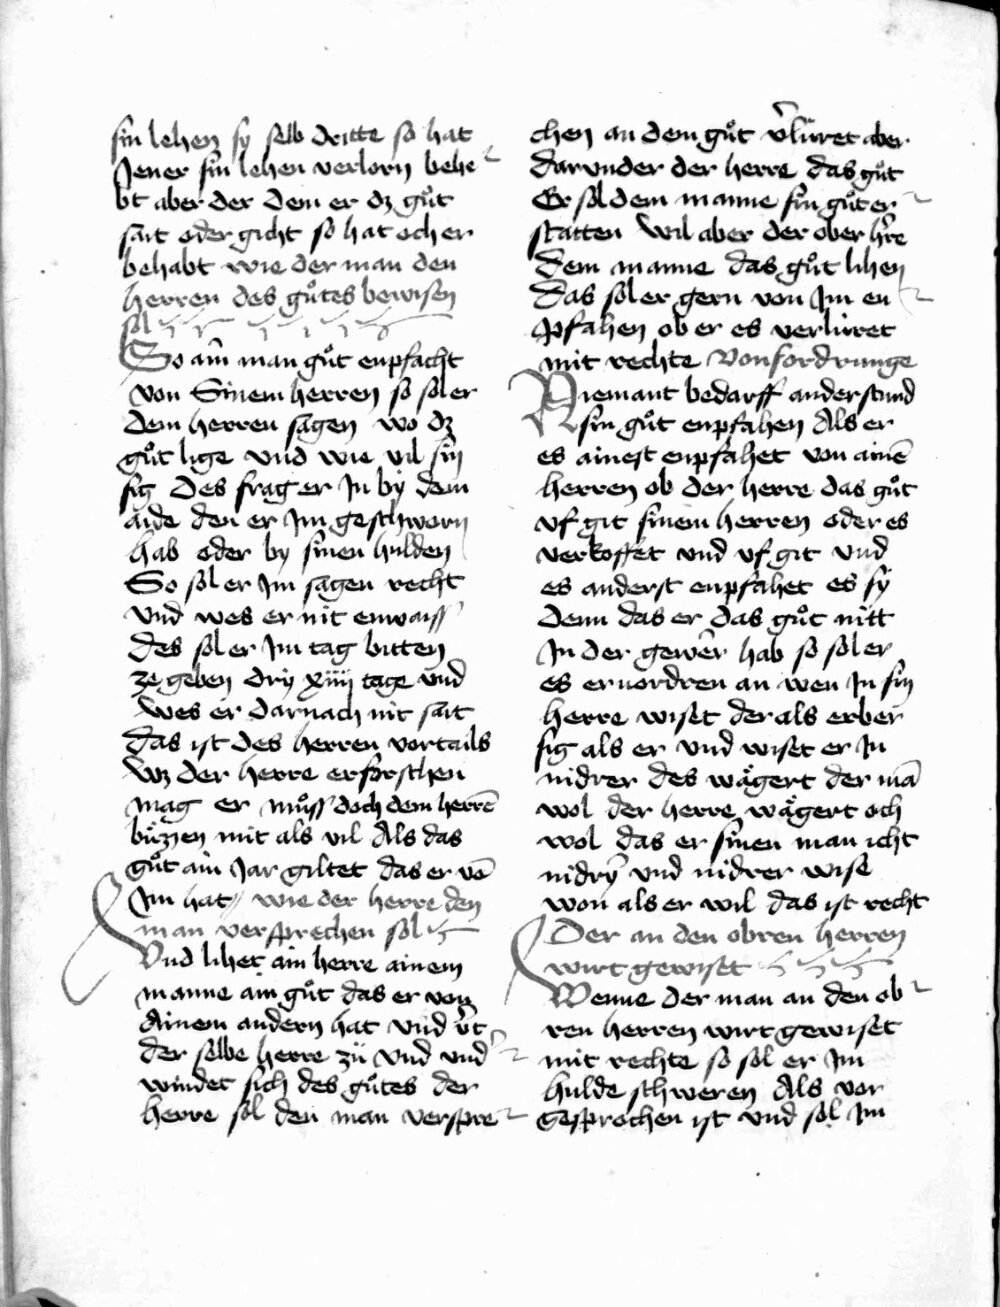 sin lehen sy selb dritte so hat
Jener sin lehen verlorn behe
bt aber der dem er dz guͦt
sait oder gicht so hat och er
behabt wie der man den
herren des guͦtes bewisen
sol
So ain man guͦt enpfacht
von Sinem herren so sol er
dem herren sagen wo dz
guͦt lige vnd wie vil sin
sig Des frag er Jn by dem
aide den er Jm geschworn
hab oder by sinen hulden
So sol er Jm sagen recht
vnd wes er nit enwaiss
des sol er Jm tag bitten
ze geben dry xiiij tage vnd
wes er darnach nit sait
das ist des herren vortails
wz der herre erforschen
mag er muͦss doch dem herrē
buͤzzen mit als vil Als das
guͦt ain Jar giltet das er vō
Jm hat wie der herre den
man versprechen sol
Vnd lihet ain herre ainem
manne ain guͦt das er von
Ainem andern hat vnd v̄t
der selbe herre zü vnd vnd
windet sich des guͦtes der
herre sol den man verspre
chen an dem guͦt v̄lüret aber
darvnder der herre das guͦt
Er sol dem manne sin guͦt er
statten wil aber der ober h̄re
dem manne das guͦt lihen
das sol er gern von Jm en
pfahen ob er es verlüret
mit rechte Von fordrunge
Niemant bedarff anderstund
sin guͦt enpfahen Als er
es ainest enpfahet von ainē
herren ob der herre das guͦt
vf git sinem herren oder es
verkoffet vnd vf git vnd
es anderst enpfahet es sy
denn das er das guͦt nitt
Jn der gewer hab so sol er
es eruordren an wen Jn sin
herre wiset der als erber
sig als er vnd wiset er Jn
nidrer des waͤgert der mā
wol der herre waͤgert och
wol das er sinen man icht
nidrȳ vnd nidrer wise
won als er wil das ist recht
Der an den obren herren
wirt gewiset
Wenne der man an den ob
ren herren wirt gewiset
mit rechte so sol er Jm
hulde schweren Als vor
gesprochen ist vnd sol Jm